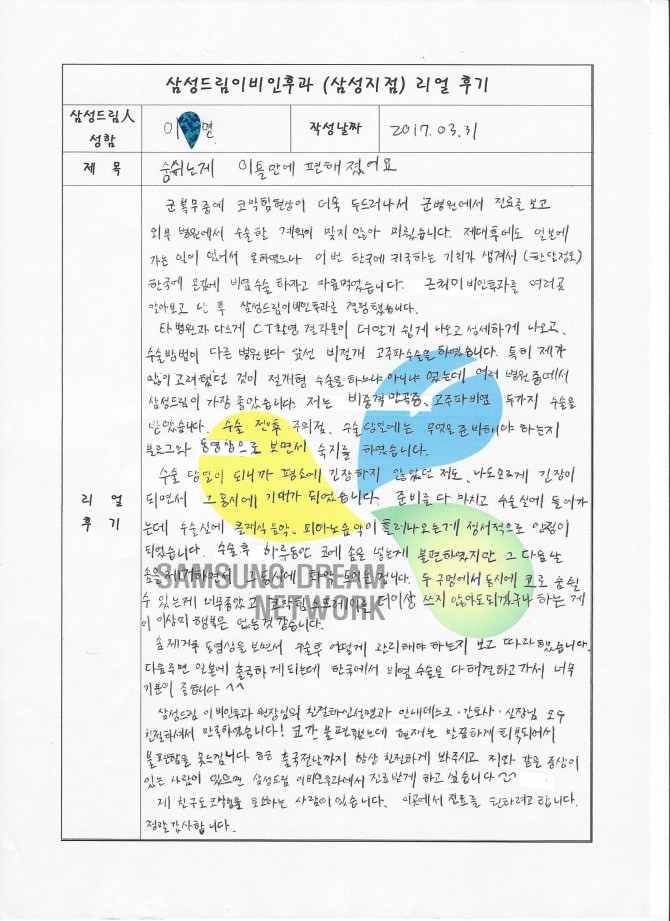 삼성드림이비인후과 (삼성지점) 리얼 후기
삼성드림人 성함
이 면
작성날짜
2017. 03. 31
제 목
숨쉬는게 이틀만에 편해 졌어요
리 얼
후 기
군 복무중에 코막힘현상이 더욱 두드러나서 군병원에서 진료를 보고
외부 병원에서 수술할 계획이 맞지않아 미뤘습니다. 제대후에도 일본에
가는 일이 있어서 못하였으나 이번 한국에 귀국하는 기회가 생겨서 (한달정도)
한국에 온김에 비염수술 하자고 마음먹었습니다. 근처 이비인후과를 여러곳
알아보고 난 후 삼성드림이비인후과로 결정했습니다.
타 병원과 다르게 CT촬영 결과물이 더 알기 쉽게 나오고 섬세하게 나오고,
수술방법이 다른 병원보다 앞선 비절개 고주파수술을 하였습니다. 특히 제가
많이 고려했던 것이 절개형 수술을 하느냐 아니냐 였는데 여러 병원 중에서
삼성드림이 가장 좋았습니다. 저는 비중격만곡증, 고주파비염 두가지 수술을
받았습니다. 수술 전・후 주의점, 수술당일에는 무엇을 준비해야 하는지
블로그와 동영상으로 보면서 숙지를 하였습니다.
수술 당일이 되니까 평소에 긴장하지 않았던 저도, 나도모르게 긴장이
되면서 그 동시에 기대가 되었습니다. 준비를 다 마치고 수술실에 들어가
는데 수술실에 클래식음악, 피아노음악이 흘러나오는게 정서적으로 안정이
되었습니다. 수술후 하루동안 코에 솜을 넣는게 불편하였지만 그 다음날
솜을 제거하면서 그 동시에 확 뚫리는 겁니다. 두 구멍에서 동시에 코로 숨쉴
수 있는게 너무좋았고 코막힘 스프레이를 더이상 쓰지 않아도되겠구나 하는 게
이 이상의 행복은 없는것 같습니다.
솜 제거후 동영상을 보면서 수술후 어떻게 관리해야 하는지 보고 따라 했습니다.
다음주면 일본에 출국하게 되는데 한국에서 비염 수술을 다 해결하고가서 너무
기분이 좋습니다 ^^
삼성드림 이비인후과 원장님의 친절하신설명과 안내데스크・간호사・실장님 모두
친절하셔서 만족하였습니다! 코가 불편했는데 현재는 말끔하게 회복되어서
불편함을 못느낍니다 출국전날까지 항상 친절하게 봐주시고 저와 같은 증상이
있는 사람이 있으면 삼성드림 이비인후과에서 진료받게 하고 싶습니다
제 친구도 코막힘을 호소하는 사람이 있습니다. 이곳에서 진료를 권하려고 합니다.
정말 감사합니다.
SAMSUNG DREAM
NETWORK